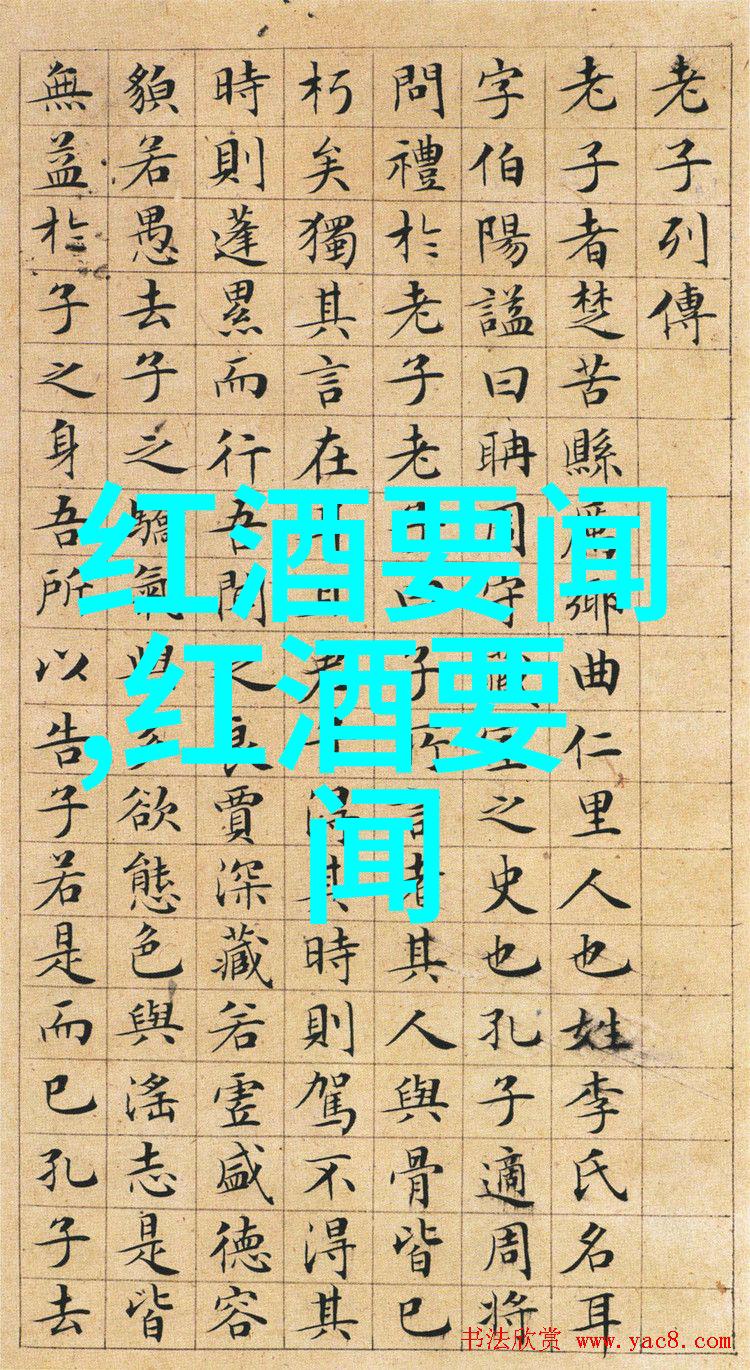 老子列傳
老子者楚苦縣厲鄉曲仁里人也姓李氏名耳
字伯陽謚曰聃周守藏室之史也孔子適周將
問禮於老子老子曰子所言者其人與骨皆已
朽矣獨其言在耳且君子得其時則駕不得其
時則蓬累而行吾聞之良賈深藏若虛盛德容
貌若愚去子之驕氣與多欲態色與滛志是皆
無益於子之身吾所以告子若是而已孔子去
红酒要闻
,红酒要
闻
书法欣赏 www.yac8.com